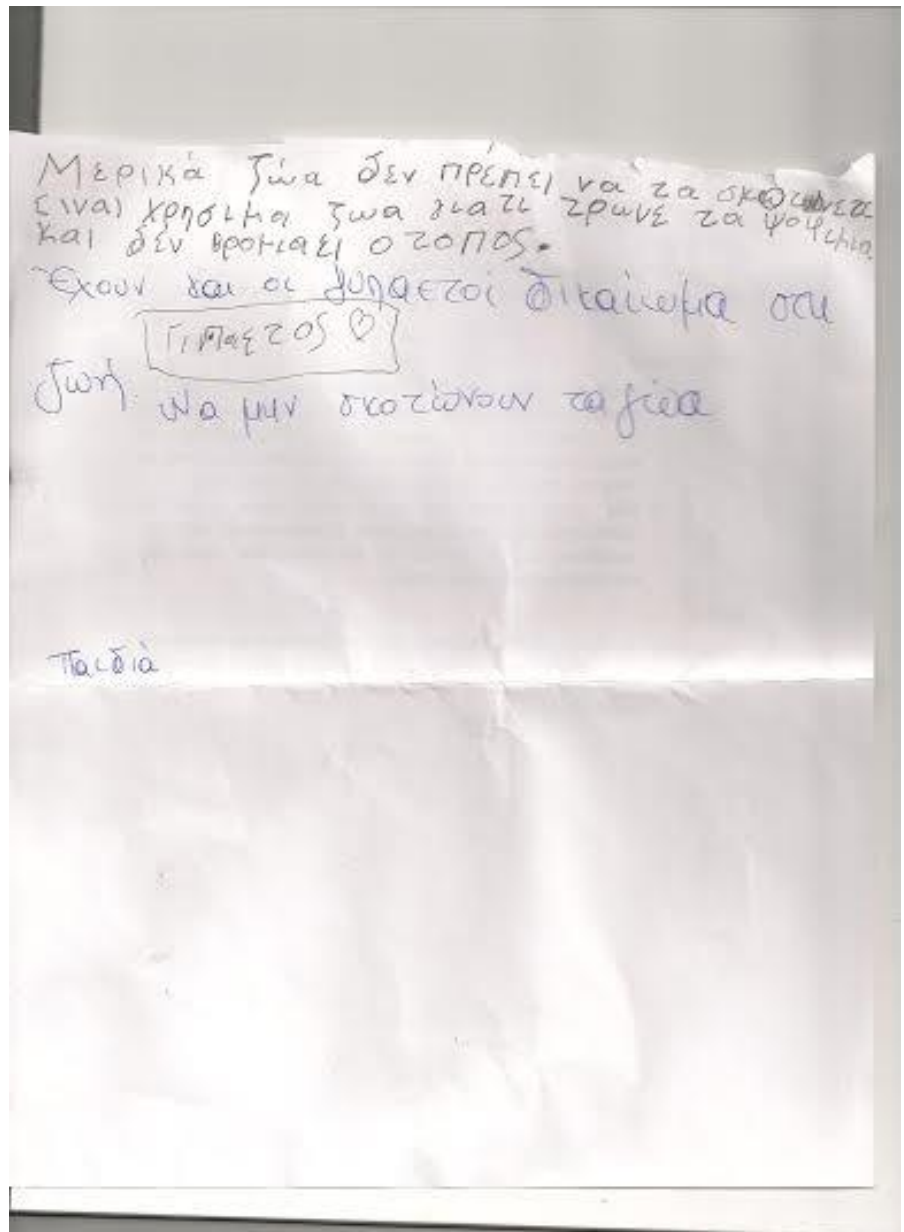 Μερικά ζώα δεν πρέπει να τα σκοτώνετε
είναι χρησιμα ζωα γιατι τρωνε τα ψοφιμια
και δεν βρομιαει ο τοπος.
Έχουν και οι γυπαετοί δικαίωμα στη
Γιπαετος ♡
ζωή. Να μην σκοτώνουν τα ζώα
Παιδιά